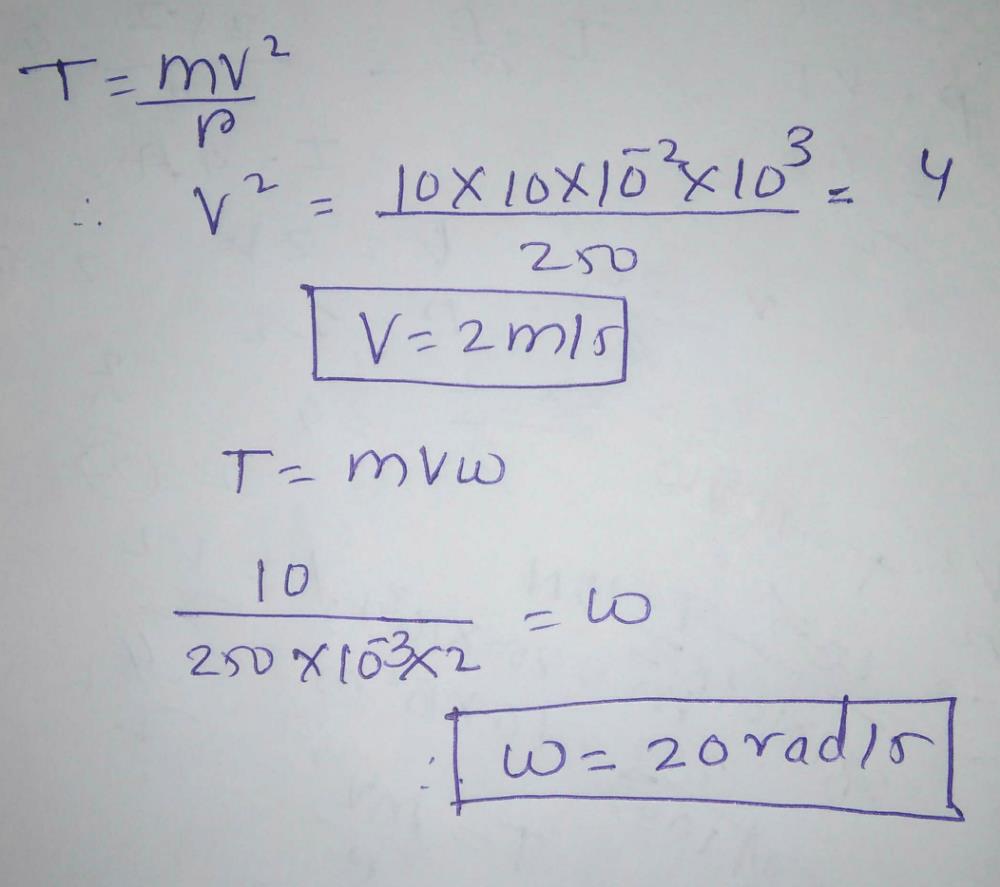 T = mv²/r
∴ V² = 10×10×10⁻²×10³/250 = 4
V = 2 m/s
T = mvω
10/250×10⁻³×2 = ω
∴ ω = 20 rad/s